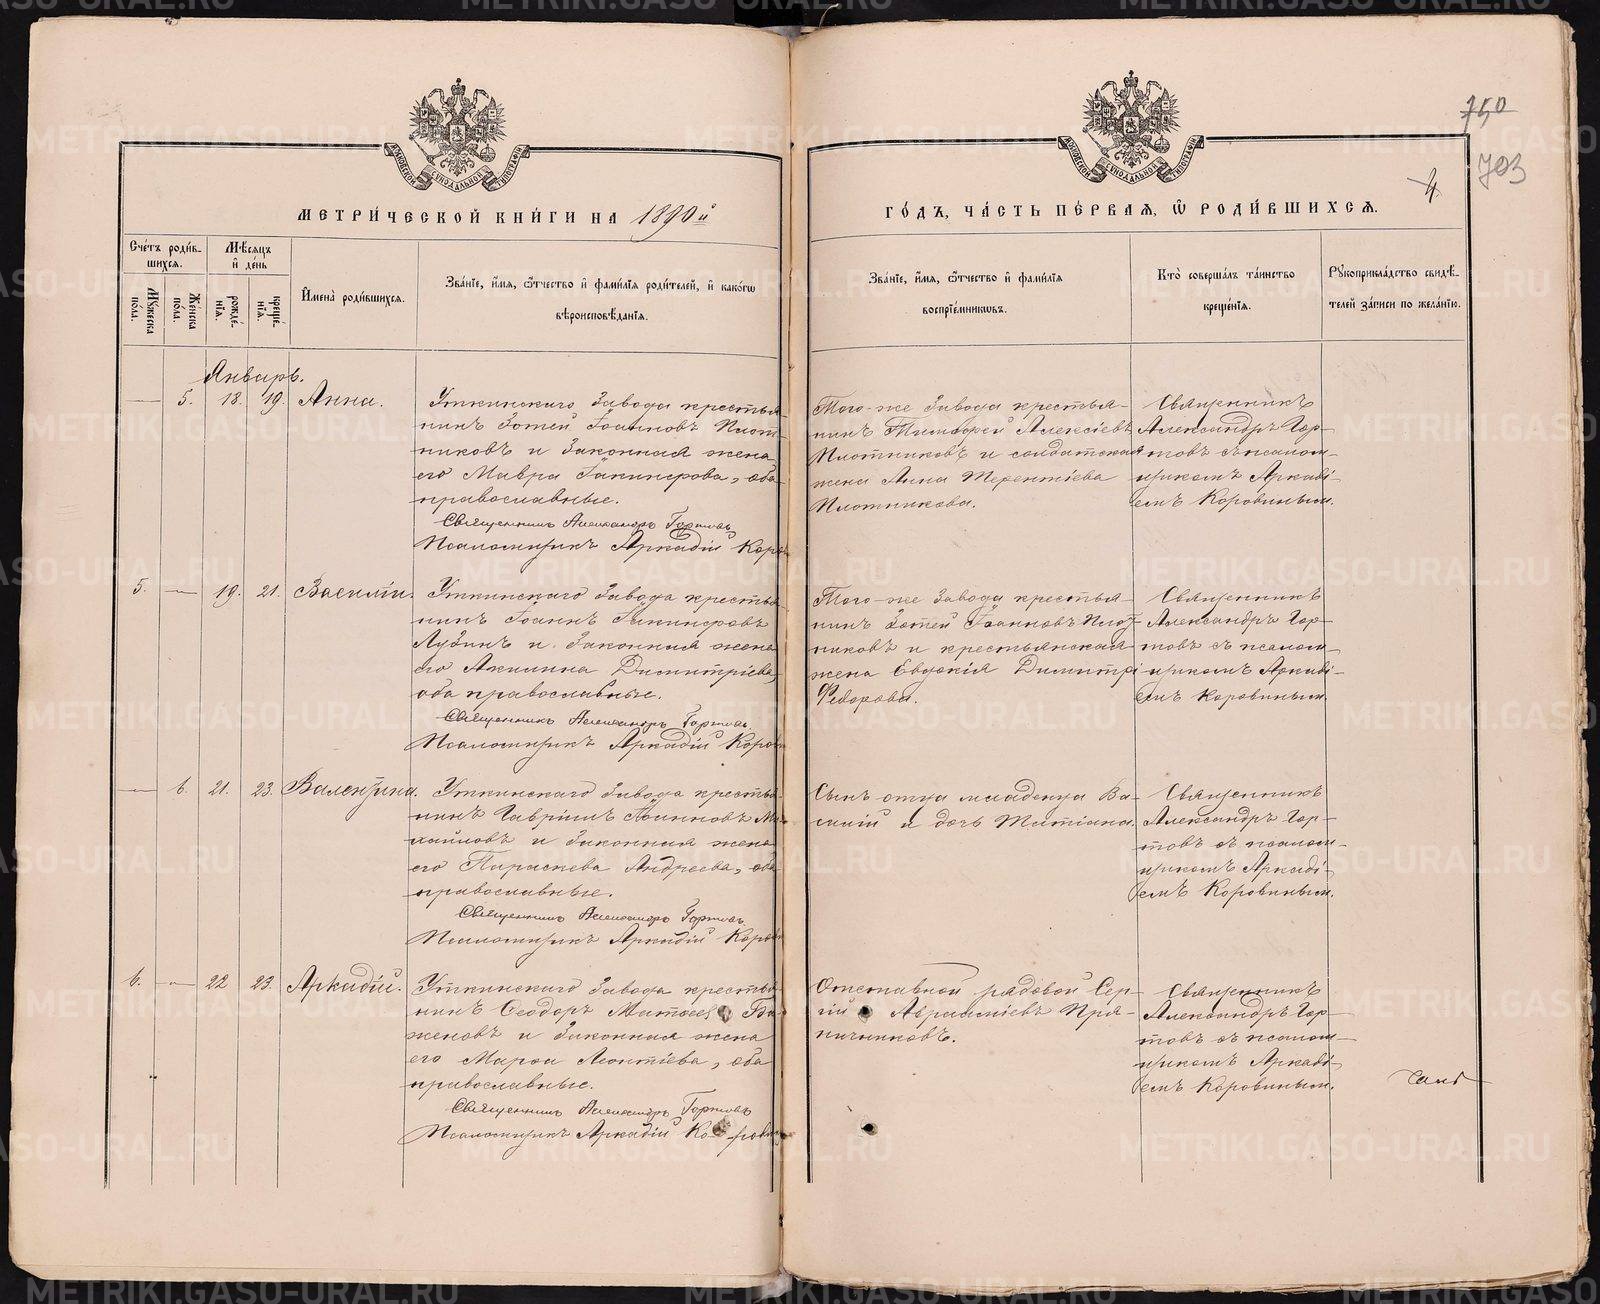 750
703
4.
МОСКОВСКОЙ СѴНОДАЛЬНОЙ ТИПОГРАФІИ
МОСКОВСКОЙ СѴНОДАЛЬНОЙ ТИПОГРАФІИ
МЕТРИ́ЧЕСКОЙ КНИ́ГИ НА 1890й
ГО́ДЪ, ЧА́СТЬ ПЕ́РВАЯ, Ѡ РОДИ́ВШИХСЯ.
Сче́тъ роди́в-
шихся.
Му́жеска
по́ла.
Же́нска
по́ла.
Мѣ́сяцъ
и҆ де́нь
рожде́-
нїя.
креще́-
нїя.
И҆мена̀ роди́вшихся.
Зва́нїе, и҆́мя, ѻ҆́тчество и҆ фами́лїя роди́телей, и҆ како́гѡ
вѣроисповѣ́данїя.
Зва́нїе, и҆́мя, ѻ҆́тчество и҆ фами́лїя
воспрїе́мниковъ.
Кто̀ соверша́лъ та́инство
креще́нїя.
Рꙋкоприкла́дство свидѣ́-
телей за́писи по жела́нїю.
Январь.
— 5. 18. 19. Анна.
Уткинскаго Завода крестья-
нинъ Зотей Іоанновъ Плот-
никовъ и законная жена
его Мавра Іакинѳова, оба
православные.
Священникъ Александръ Гортовъ
Псаломщикъ Аркадій Коров
Того-же Завода крестья-
нинъ Тимоѳей Алексіевъ
Плотниковъ и солдатская
жена Анна Терентіева
Плотникова.
Священникъ
Александръ Гор-
товъ съ псалом-
щикомъ Аркаді-
емъ Коровинымъ.
5. — 19. 21. Василій.
Уткинскаго Завода крестья-
нинъ Іоаннъ Іакинѳовъ
Лузинъ и законная жена
его Акилина Димитріева,
оба православные.
Священникъ Александръ Гортовъ
Псаломщикъ Аркадій Корови
Того-же Завода крестья-
нинъ Зотей Іоанновъ Плот-
никовъ и крестьянская
жена Евдокія Димитрі
Федорова.
Священникъ
Александръ Гор-
товъ съ псалом-
щикомъ Аркаді-
емъ Коровинымъ.
— 6. 21. 23. Валентина.
Уткинскаго Завода крестья-
нинъ Гавріилъ Іоанновъ Ми-
хайловъ и законная жена
его Параскева Андреева, оба
православные.
Священникъ Александръ Гортовъ
Псаломщикъ Аркадій Корови
Сынъ отца младенца Ва-
силій и дочь Татіана.
Священникъ
Александръ Гор-
товъ съ псалом-
щикомъ Аркаді-
емъ Коровинымъ.
6. — 22 23. Аркадій.
Уткинскаго Завода крестья-
нинъ Ѳеодоръ Матѳеев Ба-
женовъ и законная жена
его Марѳа Леонтіева, оба
православные.
Священникъ Александръ Гортовъ
Псаломщикъ Аркадій Коровин
Отставной рядовой Сер-
гій Авраміевъ Пря-
ничниковъ.
Священникъ
Александръ Гор-
товъ съ псалом-
щикомъ Аркаді-
емъ Коровинымъ.
METRIKI.GASO-URAL.RU